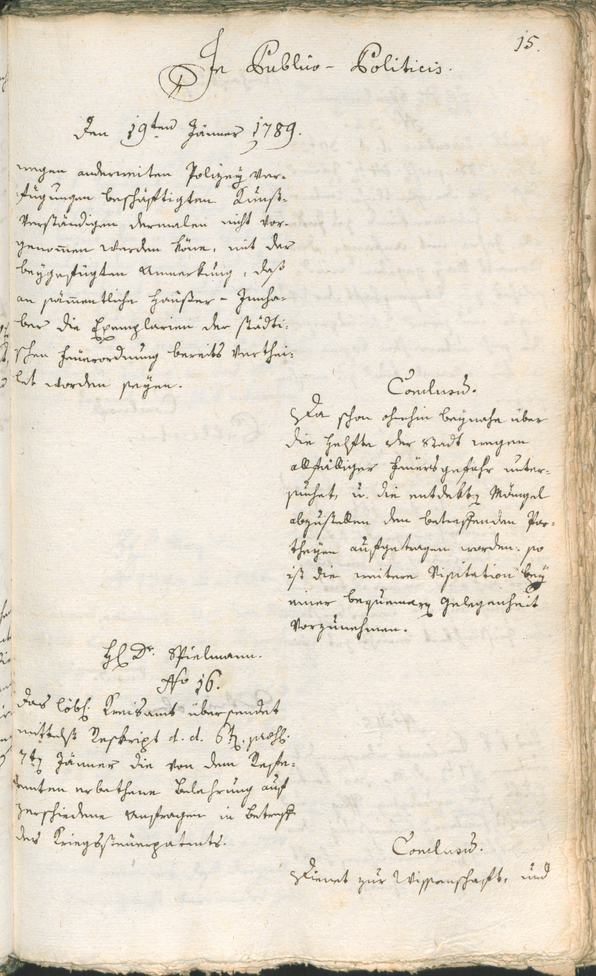 15.
In Publico-Politicis.
Den 19ten Jänner 1789.
wegen anderweiten Polizey Ver-
fügungen beschäftigten Kunst-
verständigen dermalen nicht vor-
genommen werden köne, mit der
beygefügten Anmerkung, daß
an sämmentliche Häußer-Innha-
ber die Exemplarien der städti-
schen Feuerordnung bereits verthei-
let worden seyen.
Conclusum.
Da schon ohnehin beynahe über
die Helfte der Stadt wegen
allfälliger Feuersgefahr unter-
suchet, u. die entdekte Mängel
abzustellen den betreffenden Par-
theyen aufgetragen worden: so
ist die weitere Visitation bey
einer bequemern Gelegenheit
vorzunehmen.
H. Dr. Spielmann.
No 16.
Das löbl. Kreisamt übersendet
mittelst Reskript d. d. 6t, præs.
7t Jänner die von dem
erbethene Belehrung auf
verschiedene Anfragen in Betreff
des Kriegssteuerpatents.
Conclusum.
Dienet zur Wissenschaft, und